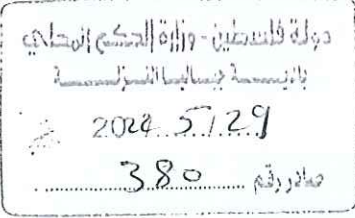 دولة فلسطين - وزارة الحكم المحلي
بلدية
2024 5/29
صادر رقم 380